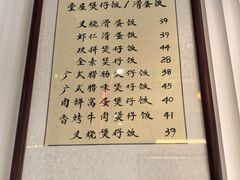 堂屋煲仔饭/滑蛋饭
叉烧滑蛋饭 39
虾仁滑蛋饭 45
双拼煲仔饭 44
全素煲仔饭 28
广式腊肠煲仔饭 38
广式腊味煲仔饭 45
肉饼窝蛋煲仔饭 35
香烤牛肉煲仔饭 41
叉烧煲仔饭 39